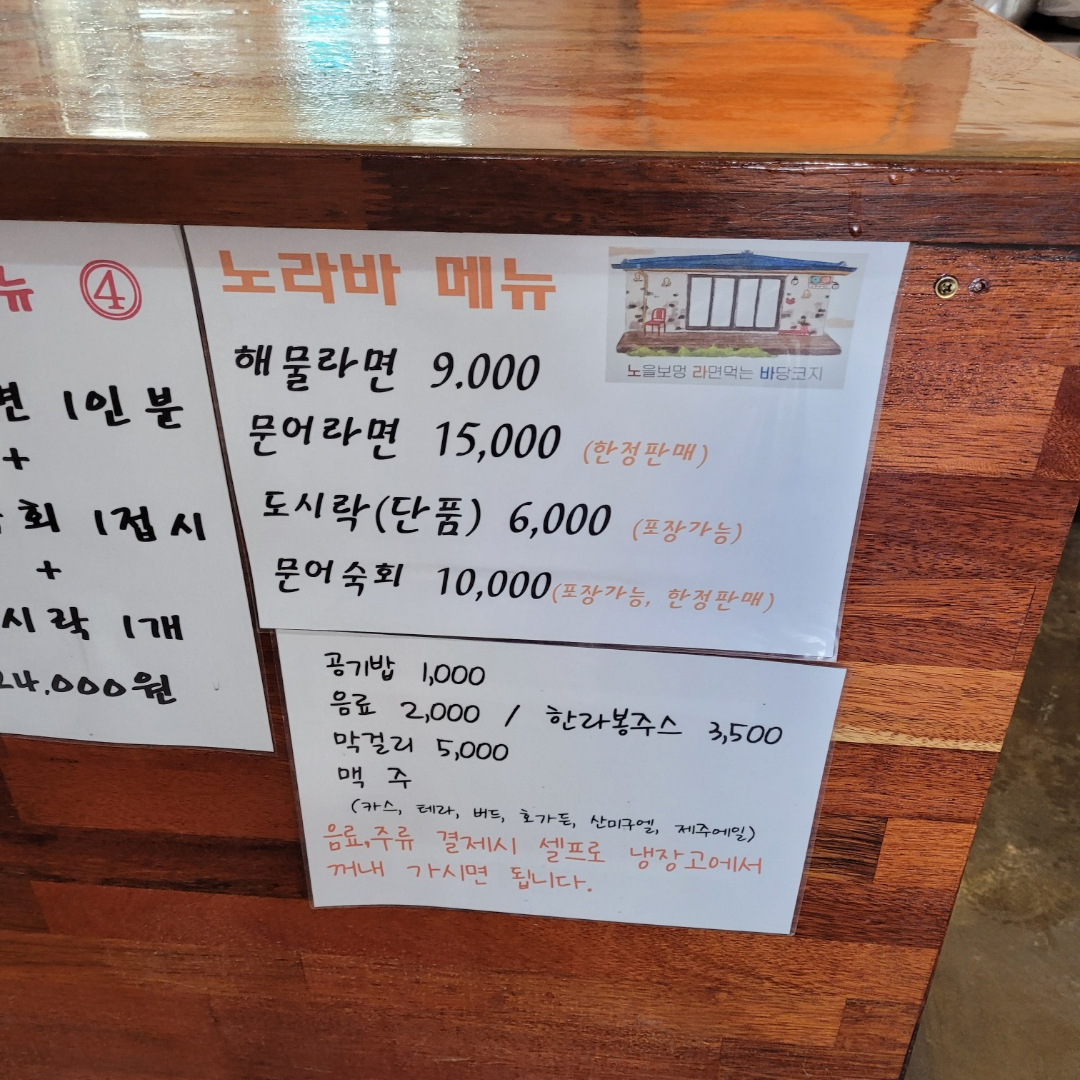 뉴 ④
면 1인분
+
회 1접시
+
시락 1개
24.000원
노라바 메뉴
노을보멍 라면먹는 바당코지
해물라면 9.000
문어라면 15,000 (한정판매)
도시락(단품) 6,000 (포장가능)
문어숙회 10,000(포장가능, 한정판매)
공기밥 1,000
음료 2,000 / 한라봉주스 3,500
막걸리 5,000
맥 주
(카스, 테라, 버드, 호가든, 산미구엘, 제주에일)
음료,주류 결제시 셀프로 냉장고에서
꺼내 가시면 됩니다.